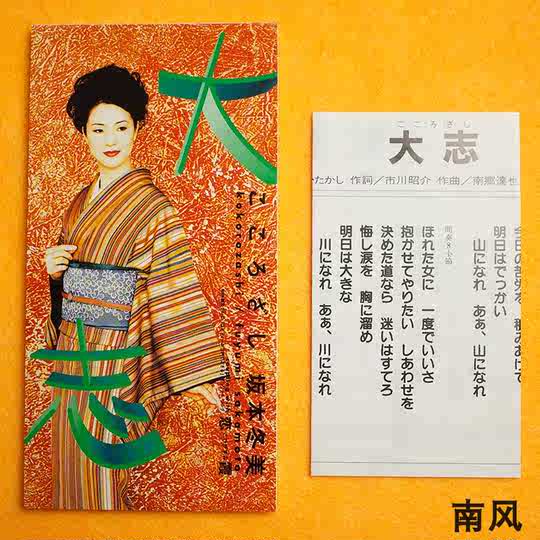 大志
こころざし 坂本冬美
kokorozashi / fuyumi sakamoto
こころざし
大志
たかし 作詞／市川昭介 作曲／南郷達也
明日はでっかい
山になれ あぁ、山になれ
ほれた女に 一度でいいさ
抱かせてやりたい しあわせを
決めた道なら 迷いはすてろ
悔し涙を 胸に溜め
明日は大きな
川になれ あぁ、川になれ
南风